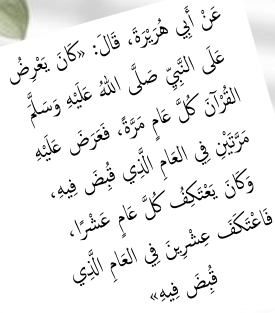 عَنْ أَبِي هُرَيْرَةَ، قَالَ: «كَانَ يَعْرِضُ
عَلَى النَّبِيِّ صَلَّى اللهُ عَلَيْهِ وَسَلَّمَ
القُرْآنَ كُلَّ عَامٍ مَرَّةً، فَعَرَضَ عَلَيْهِ
مَرَّتَيْنِ فِي العَامِ الَّذِي قُبِضَ فِيهِ،
وَكَانَ يَعْتَكِفُ كُلَّ عَامٍ عَشْرًا،
فَاعْتَكَفَ عِشْرِينَ فِي العَامِ الَّذِي
قُبِضَ فِيهِ»